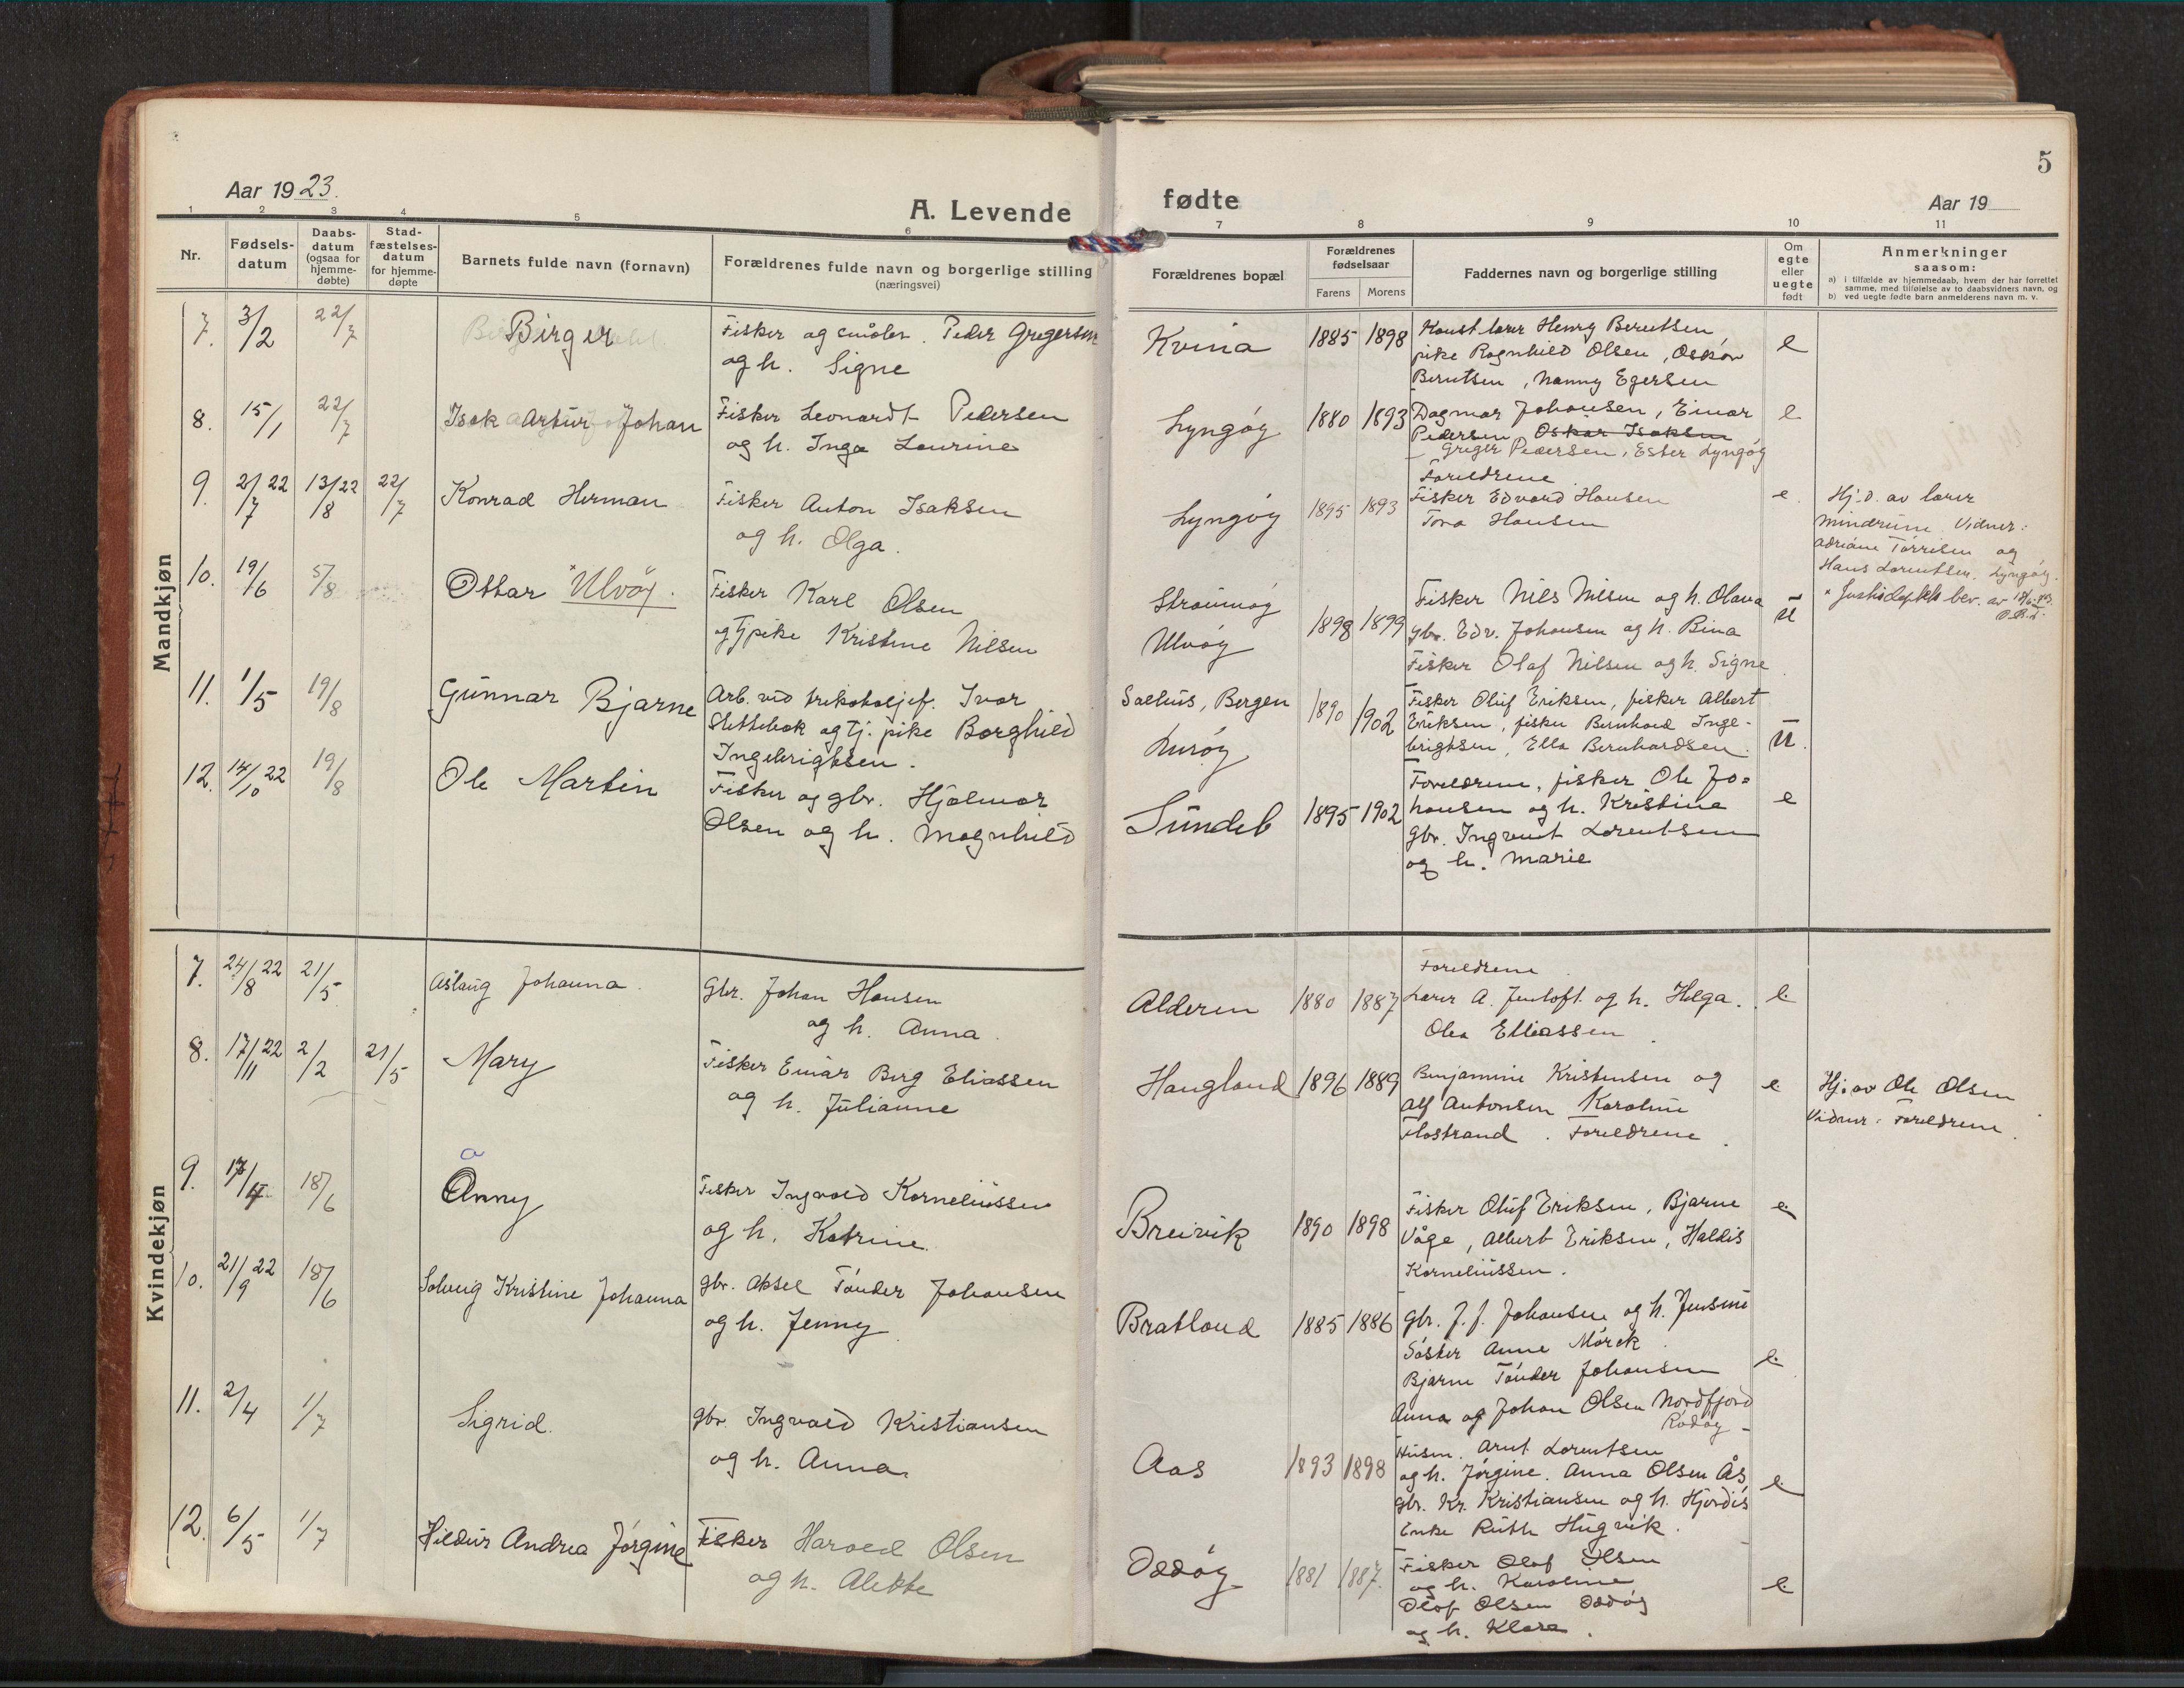 Aar 1923.
A. Levende
1 2 3 4 5 6
Nr.
Fødsels-
datum
Daabs-
datum
(ogsaa for
hjemme-
døbte)
Stad-
fæstelses-
datum
for hjemme-
døpte
Barnets fulde navn (fornavn)
Forældrenes fulde navn og borgerlige stilling
(næringsvei)
Mandkjøn
7. 3/2 22/7 Birger
Fisker og Peder Gregersen
og h. Signe
8. 15/1 22/7 Isak Artur Johan
Fisker Leonardt Pedersen
og h. Inga Laurine
9. 2/7 22 13/8 22 22/7 Konrad Herman
Fisker Anton Isaksen
og h. Olga.
10. 19/6 5/8 Ottar "Ulvøy".
Fisker Karl Olsen
og Tjpike Kristine Nilsen
11. 1/5 19/8 Gunnar Bjarne
Arb. ved trikotasjef. Ivar
Slettebak og tj. pike Borghild
Ingebrigtsen.
12. 14/10 22 19/8 Ole Martin
Fisker og gbr. Hjalmar
Olsen og h. Magnhild
Kvindekjøn
7. 24/8 22 21/5 Aslaug Johanna.
Gbr. Johan Hansen
og h. Anna.
8. 17/11 22 2/2 21/5 Mary
Fisker Einar Berg Eliassen
og h. Julianne
9. 17/4 18/6 Anny
a
Fisker Ingvald Korneliussen
og h. Katrine.
10. 21/9 22 18/6 Solveig Kristine Johanna
gbr. Aksel Tønder Johansen
og h. Jenny.
11. 2/4 1/7 Sigrid.
gbr. Ingvald Kristiansen
og h. Anna
12. 6/5 1/7 Hildur Andrea Jørgine
Fisker Harald Olsen
og h. Alette
5
fødte
Aar 19
7 8 9 10 11
Forældrenes bopæl
Forældrenes
fødselsaar
Farens Morens
Faddernes navn og borgerlige stilling
Om
egte
eller
uegte
født
Anmerkninger
saasom:
a) i tilfælde av hjemmedaab, hvem der har forrettet
samme, med tilføielse av to daabsvidners navn, og
b) ved uegte fødte barn anmelderens navn m. v.
Kvina 1885 1898
lærer Henry Berntsen
pike Ragnhild Olsen, Oskar
Berntsen, Nanny Egersen
e
Lyngøy 1880 1893
Dagmar Johansen, Einar
Pedersen Oskar Isaksen
Greger Pedersen, Ester Lyngøy
e
Lyngøy 1895 1893
Foreldrene
Fisker Edvard Hansen
Tora Hansen
e.
Hj.d. av lærer
Mindrum. Vidner:
Adriane Torrisen og
Hans Lorentsen, Lyngøy.
Straumøy
Ulvøy
1898 1899
Fisker Nils Nilsen og h. Olava
gbr. Edv. Johansen og h. Bina
Fisker Olaf Nilsen og h. Signe
u
bev. av
Salhus, Bergen
Lurøy
1890 1902
Fisker Oluf Eriksen, fisker Albert
Eriksen, fisker Bernhard Inge-
brigtsen, Ella Bernhardsen.
u.
Sundeb 1895 1902
Foreldrene, fisker Ole Jo=
hansen og h. Kristina
gbr. Ingvart Lorentsen
og h. Marie
e
Alderen 1880 1887
Foreldrene
Lærer A. Jentoft og h. Helga.
Olea Eliassen
e.
Haugland 1896 1889
Benjamine Kristensen og
Alf Antonsen Karoline
Flostrand. Foreldrene.
e
Hj. av Ole Olsen
Vidner: Foreldrene.
Breivik 1890 1898
Fisker Oluf Eriksen, Bjarne
Våge, Albert Eriksen, Haldis
Korneliussen.
e.
Bratland 1885 1886
Gbr. J. J. Johansen og h. Jensine
Søster Anne Mørck
Bjarne Tønder Johansen
Anna og Johan Olsen Nordfjord
Rødøy
e.
Aas 1893 1898
Husm. Arnt Lorentsen
og h. Jørgine. Anna Olsen Ås
gbr. Kr. Kristiansen og h. Hjørdis
Enke Ruth Hugvik.
e.
Oddøy 1881 1887.
Fisker Olaf Olsen
og h. Karoline
Olaf Olsen Oddøy
og h. Klara.
e.